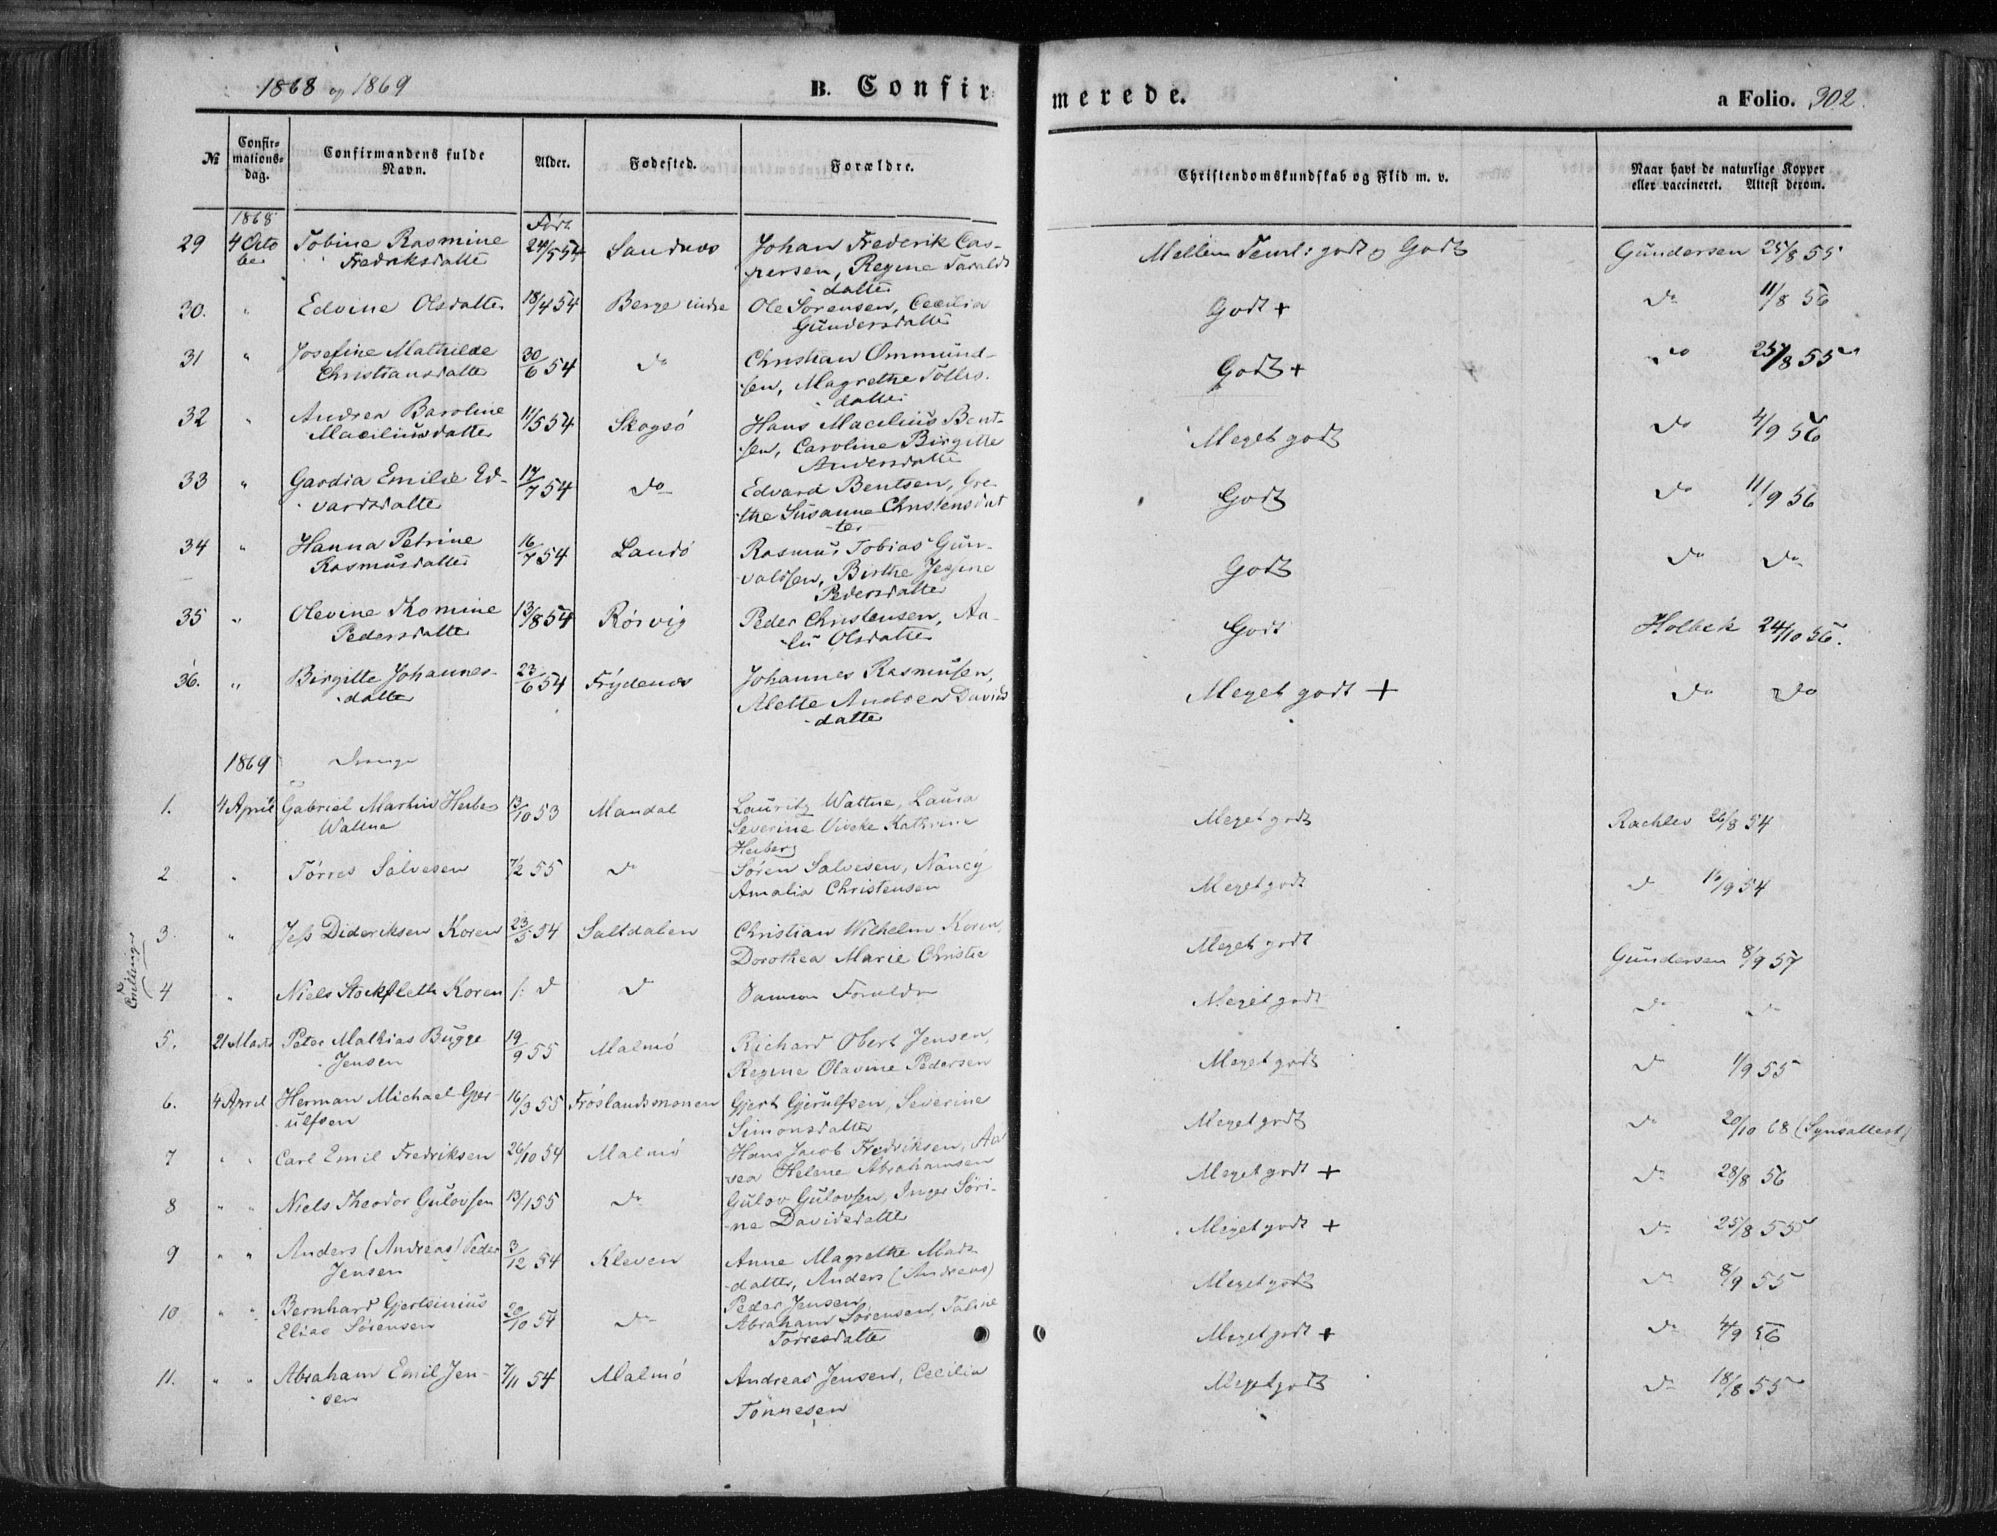 1868 og 1869
B. Confirmerede.
a Folio. 302.
№ Confirmationsdag. Confirmandens fulde Navn. Alder. Fødested. Forældre. Christendomskundskab og Flid m. v. Naar havt de naturlige Kopper eller vaccineret. Attest derom.
1868 Født
29 4 Octo Tobine Rasmine 24/5 54 Sandnæs Johan Frederik Cas- Mellem Temt: godt og Godt Gundersen 25/8 55
ber Fredriksdatter persen, Regine Taralds
datter
30. " Edvine Olsdatter 18/4 54 Berge indre Ole Sørensen, Cecilia Godt + Do 11/8 56
Gundersdatter
31 " Josefine Mathilde 30/6 54 Do Christian Ommund- Godt + Do 25/8 55
Christiansdatter sen, Magrethe Tolles-
datter
32 " Andrea Baroline 11/5 54 Skogsø Hans Macilius Bent- Meget godt Do 4/9 56
Maciliusdatter sen, Caroline Birgitte
Andersdatter
33 " Gardia Emilie Ed- 17/7 54 Do Edvard Bentsen, Gre- Godt Do 11/9 56
vardsdatter the Susanne Christensdat
ter
34 " Hanna Petrine 16/7 54 Landø Rasmus Tobias Gun- Godt Do Do
Rasmusdatter valdsen, Birthe Jegine
Pedersdatter
35 " Olevine Thomine 13/8 54 Rørvig Peder Christensen, Aa- Godt Holbek 24/10 56.
Pedersdatter lu Olsdatter
36. " Birgitte Johannes- 23/6 54 Frydenæs Johannes Rasmussen, Meget godt + Do Do
datter Alette Andrea Davids
datter
1869 Drenge
1. 4 April Gabriel Martin Herberg 13/10 53 Mandal Lauritz Wattne, Laura Meget godt Rachlev 26/8 54
Wattne Severine Viveke Kathrine
Herberg
2 " Tørres Salvesen 7/2 55 Do Søren Salvesen, Nancy Meget godt D 16/9 54
Amalia Christensen
3 " Jess Dideriksen Koren 23/5 54 Saltdalen Christian Wilhelm Koren, Meget godt Gundersen 8/9 57
Dorothea Marie Christie
Tvillinger
4 " Niels Stockfleth Koren D D Samme Forældre Meget godt D D
5. 21 Marts Peter Mathias Bugge 19/9 55 Malmø Richard Obert Jensen, Meget godt D 1/9 55
Jensen Regine Olavine Pedersen
6. 4 April Herman Michael Gjer- 16/3 55 Frøslandsmonen Gjert Gjerulfsen, Severine Meget godt Do 20/10 68 (Synsattest)
ulfsen Simonsdatter
7 " " Carl Emil Fredriksen 26/10 54 Malmø Hans Jacob Fredriksen, Aa Meget godt + Do 28/8 56
sea Helene Abrahamsen
8 " " Niels Theodor Gulovsen 13/1 55 Do Gulov Gulovsen, Inger Sèri- Meget godt + Do 25/8 55
ne Davidsdatter
9 " " Anders (Andreas) Peder 3/12 54 Kleven Anne Magrethe Mads Meget godt Do 8/9 55
Jensen datter, Anders (Andreas)
Peder Jensen
10 " " Bernhard Gjertsinius 20/10 54 Do Abraham Sørensen, Taline Meget godt + Do 4/9 56
Elias Sørensen Torresdatter
11. " " Abraham Emil Jen- 7/11 54 Malmø Andreas Jensen, Cecilia Meget godt Do 18/8 55
sen Tönnesen